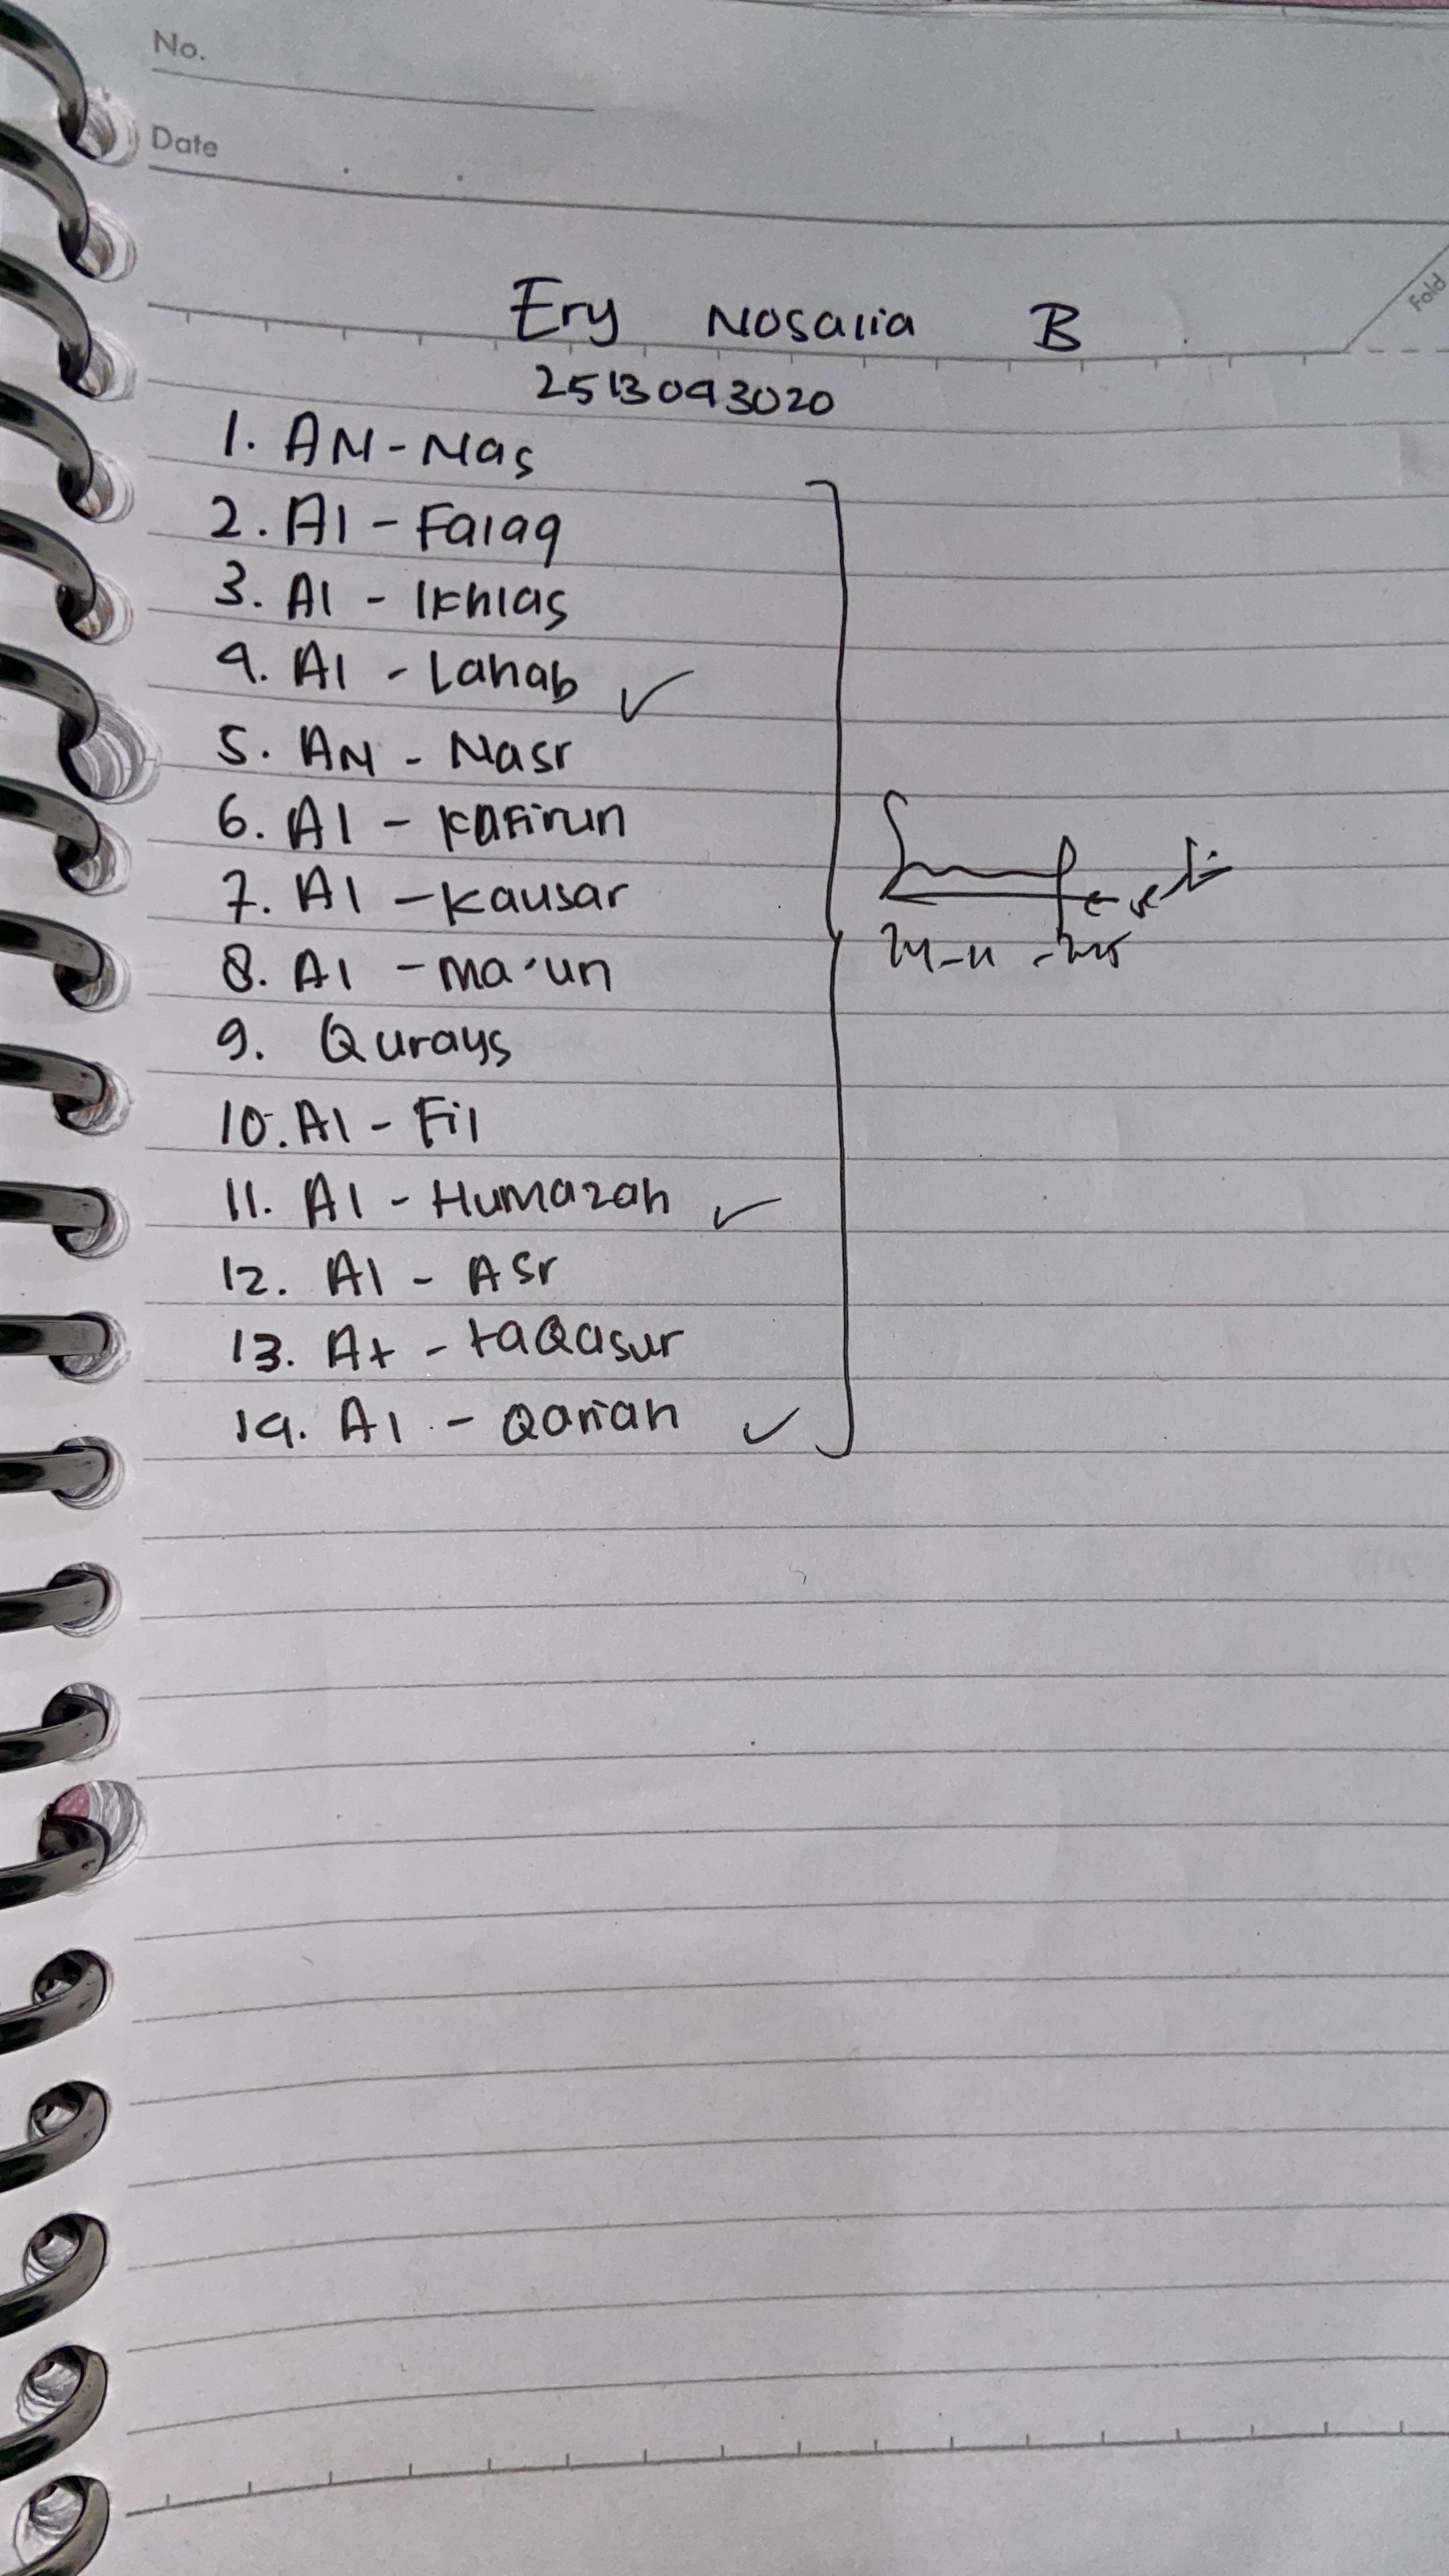 No.
Date
Fold
Ery Nosalia B
2513043020
1. AN-Nas
2. Al - Falaq
3. Al - Ikhlas
4. Al - Lahab ✓
5. AN - Nasr
6. Al - Kafirun
7. Al - Kausar
8. Al - Ma'un
9. Qurays
10. Al - Fil
11. Al - Humazah ✓
12. Al - Asr
13. At - taQasur
14. Al - Qariah ✓